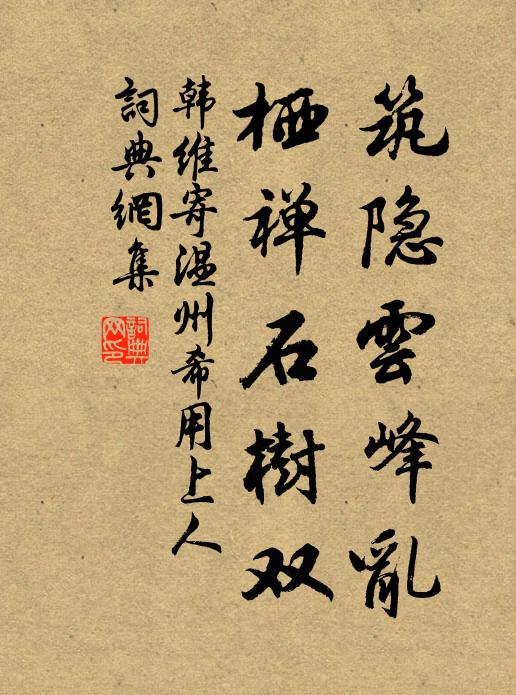 筑隐雲峰亂
栖禅石樹双
韩维寄温州希用上人
詞典網集
詞典网印